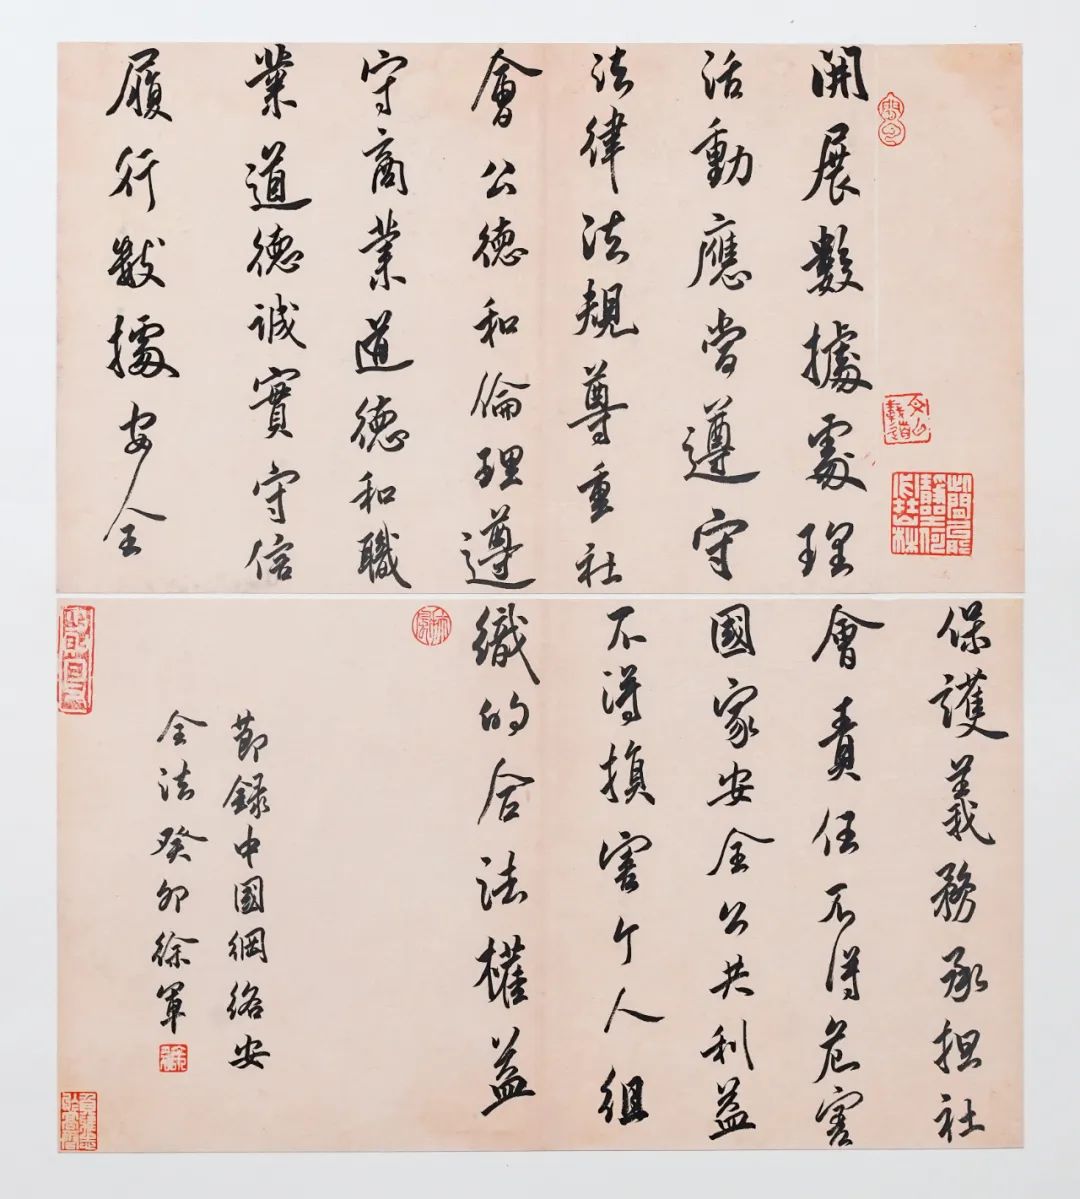 開展數據處理
活動應當遵守
法律法規尊重社
會公德和倫理遵
守商業道德和職
業道德誠實守信
履行數據安全
保護義務承担社
會責任不得危害
國家安全公共利益
不得損害个人組
織的合法權益
節錄中国網絡安
全法癸卯徐軍